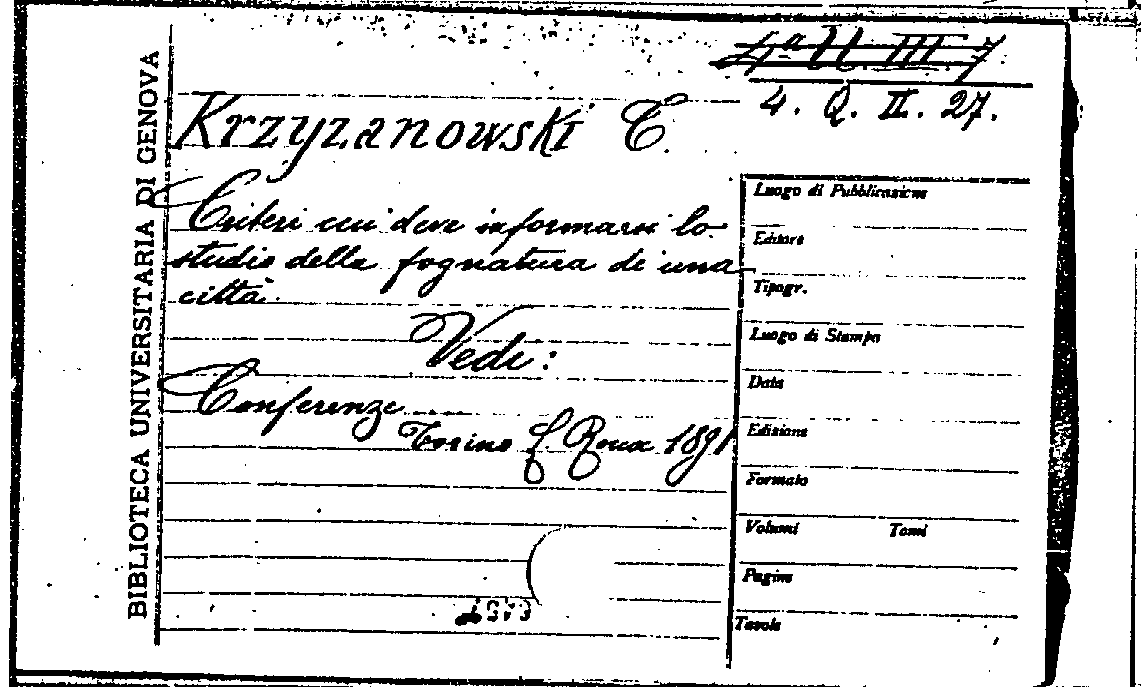 BIBLIOTECA UNIVERSITARIA DI GENOVA
4ª II III 7
4. Q. II. 27.
Krzyzanowski C.
Criteri cui deve informarsi lo
studio della fognatura di una
città.
Vedi:
Conferenze
Torino L. Roux 1891
Luogo di Pubblicazione
Editore
Tipogr.
Luogo di Stampa
Data
Edizione
Formato
Volumi Tomi
Pagine
Tavole